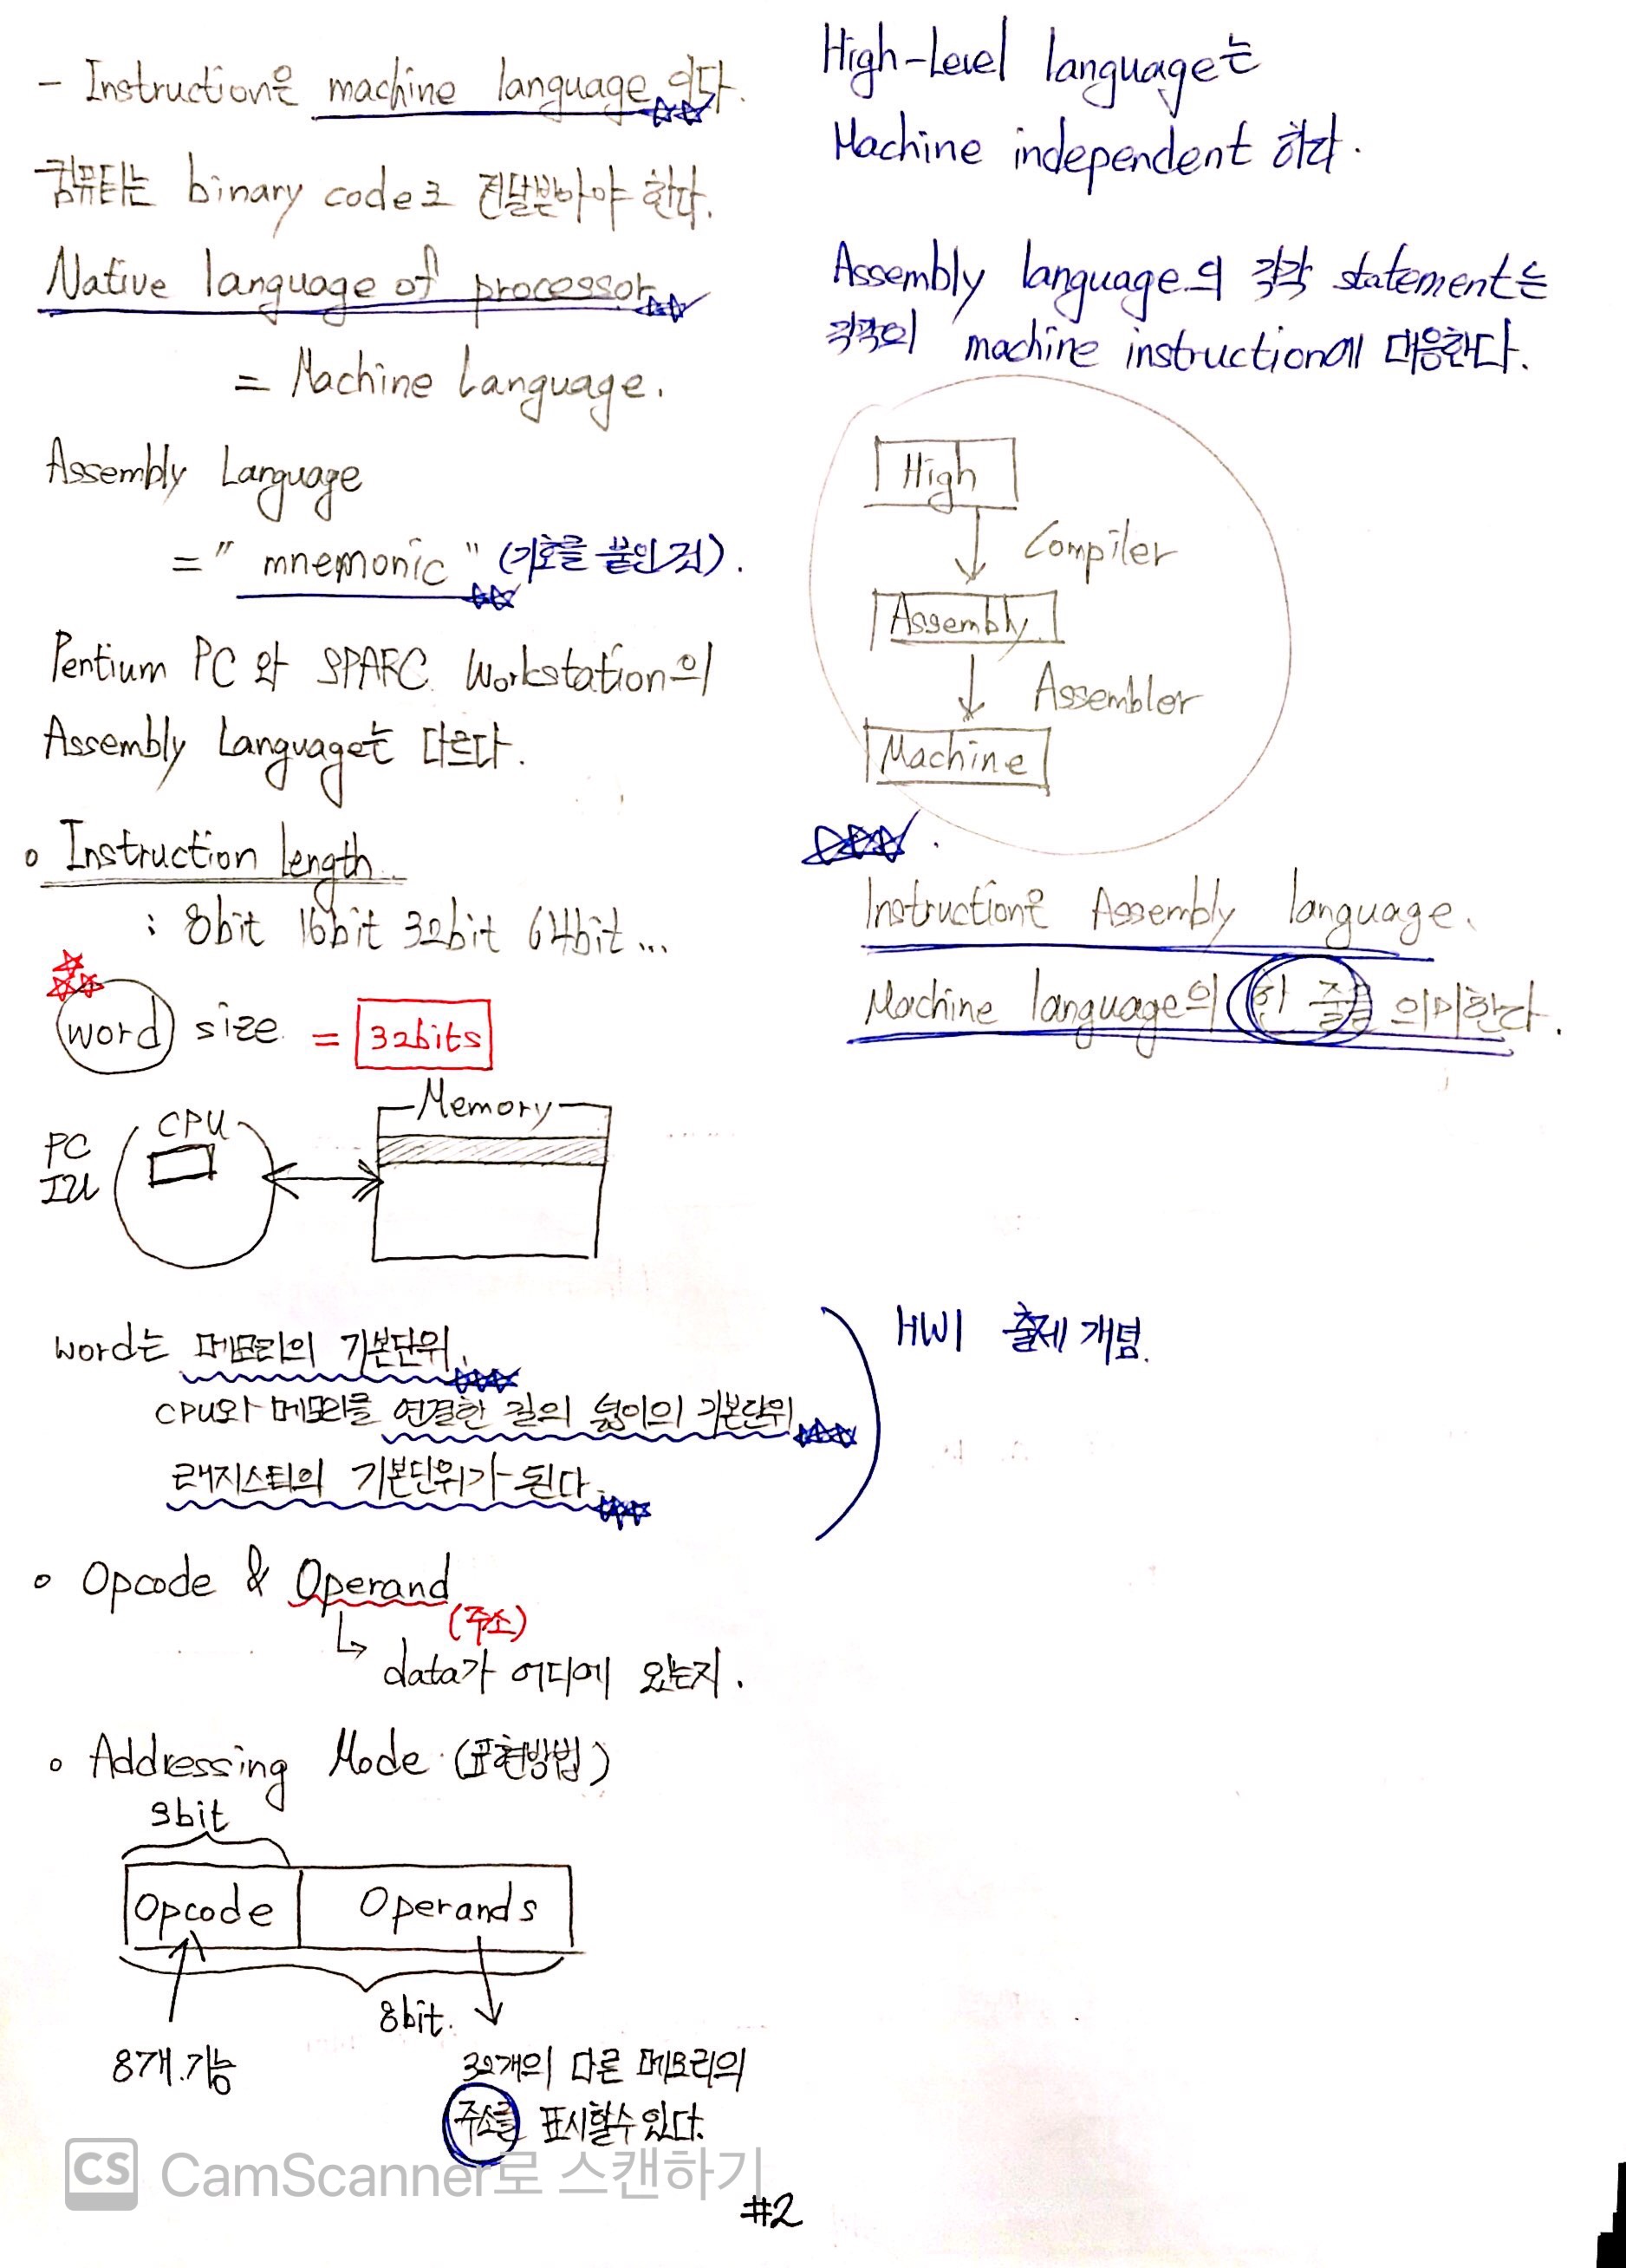 - Instruction은 machine language 이다.
컴퓨터는 binary code로 전달받아야 한다.
Native language of processor
= Machine Language.
Assembly Language
= " mnemonic " (기호를 붙인 것).
Pentium PC 와 SPARC Workstation의
Assembly Language는 다르다.
o Instruction length
: 8bit 16bit 32bit 64bit ...
word size = 32bits
Memory
CPU
PC
IU
word는 메모리의 기본단위.
CPU와 메모리를 연결한 길의 넓이의 기본단위
래지스터의 기본단위가 된다.
o Opcode & Operand
(주소)
data가 어디에 있는지.
o Addressing Mode (표현방법)
3bit
Opcode Operands
8bit.
8개.기능
32개의 다른 메모리의
주소를 표시할수 있다.
High-Level language는
Machine independent 하다.
Assembly language의 각각 statement는
각각의 machine instruction에 대응한다.
High
Compiler
Assembly
Assembler
Machine
Instruction은 Assembly language.
Machine language의 한 줄을 의미한다.
HW1 출제 개념.
CS CamScanner로 스캔하기
#2